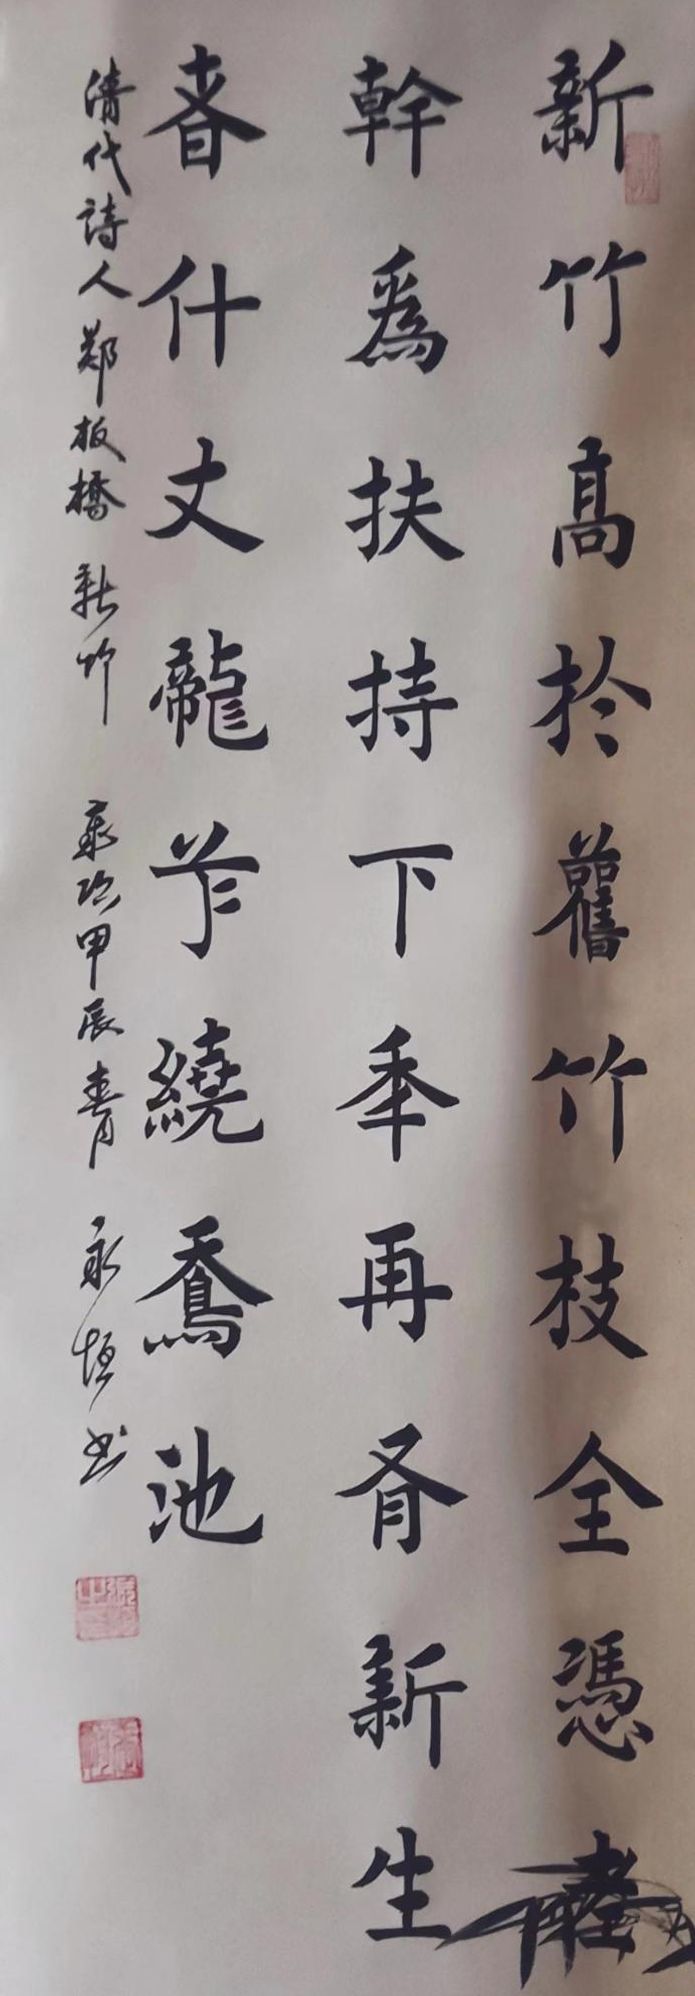 新竹高於舊竹枝全憑
幹爲扶持下年再有新生
者什丈龍孫繞鳳池
清代詩人鄭板橋 新竹 歲次甲辰春月 永恒书